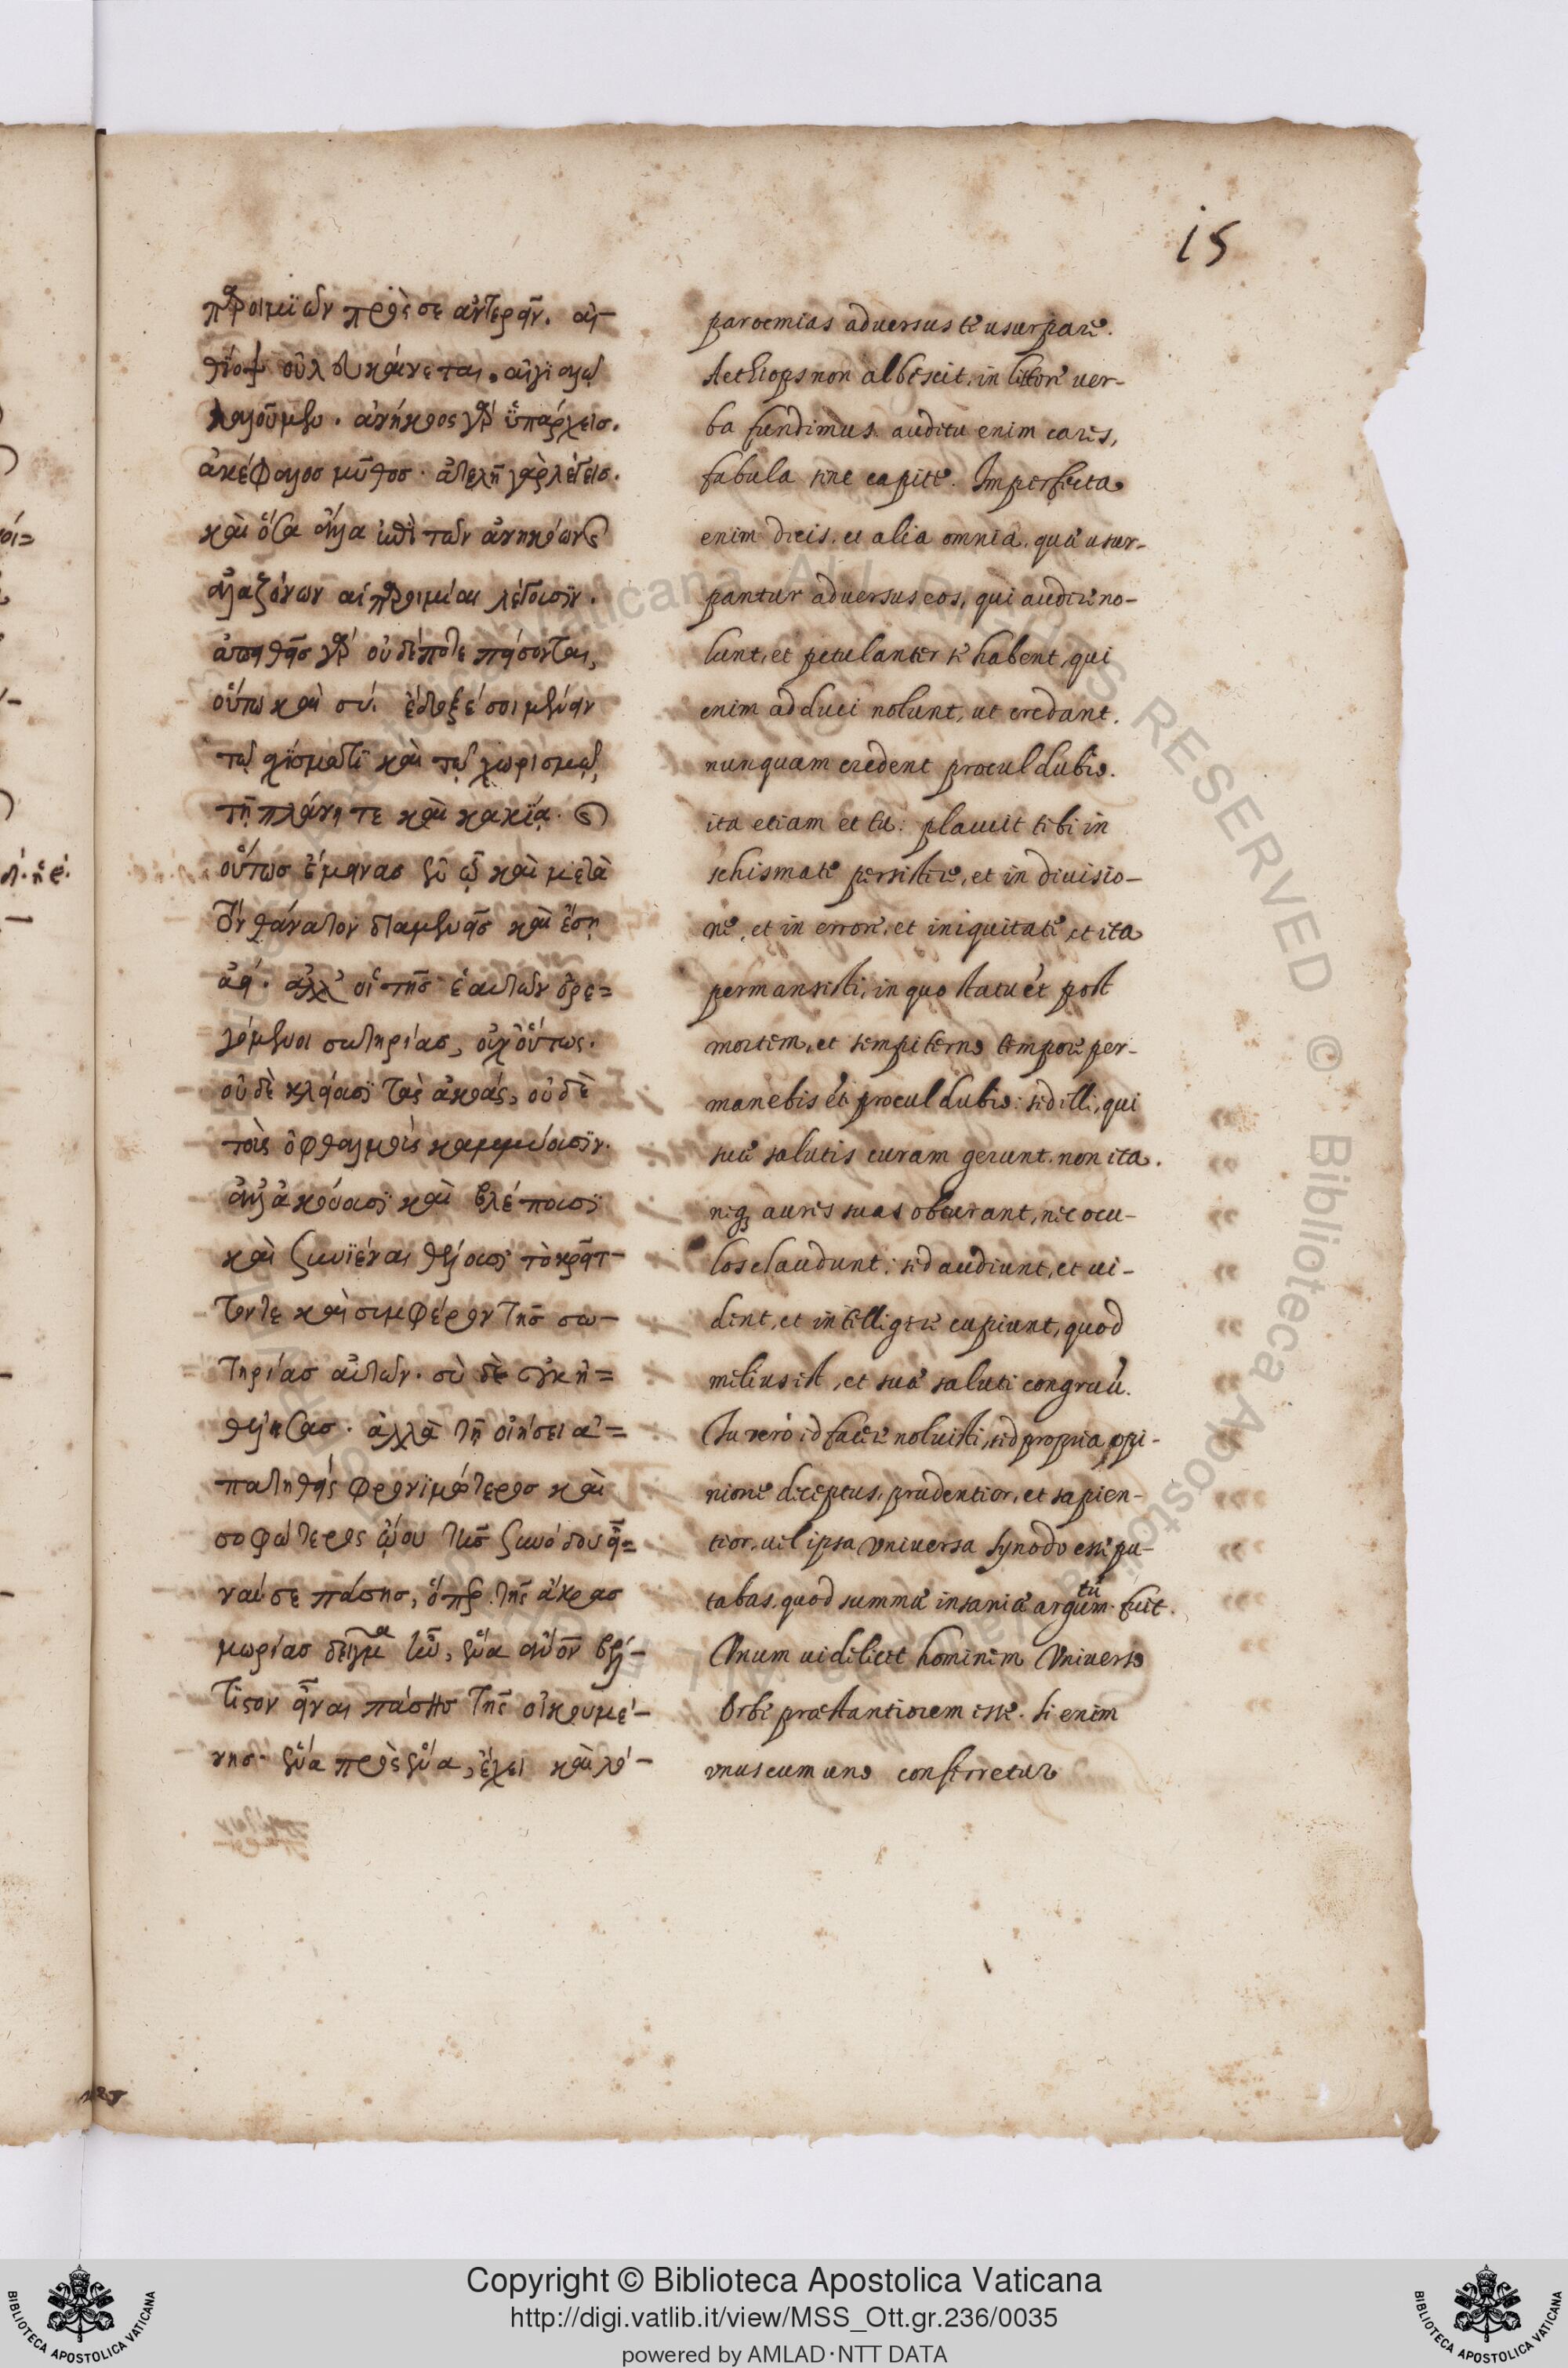 15
παροιμιῶν πρὸς σε ἀντερεῖν. αἰ-
θίοψ οὐ λευκαίνεται. αἰγιαλῷ
λαλοῦμεν. ἀνήκοος γὰρ ὑπάρχεισ.
ἀκέφαλοσ μῦθοσ. ἀτελῆ γὰρ λέγεισ.
καὶ ὅσα ἄλλα ἐπὶ τῶν ἀνηκόων
ἀλαζόνων αἱ παροιμίαι λέγουσϊν.
ἀπειθεῖσ γὰρ οὐδέποτε πείσονται,
οὕτω καὶ σύ. ἔδοξέ σοι μένειν
τῷ σχίσματϊ καὶ τῷ χωρισμῷ,
τῇ πλάνῃ τε καὶ κακίᾳ.
οὕτωσ ἔμεινασ ἐν ᾧ καὶ μετὰ
τὸν θάνατον διαμένεισ καὶ ἔσῃ
ἀεί. ἀλλ' οἱ τῆσ ἑαυτῶν ὀρε=
γόμενοι σωτηρίασ, οὐχ οὕτως.
οὐδὲ κλείουσϊ τὰς ἀκοάς, οὐδὲ
τοὺς ὀφθαλμοὺς καμμύουσϊν.
ἀλλ' ἀκούουσϊ καὶ βλέπουσϊ
καὶ συνϊέναι θέλουσϊ τὸ κρεῖτ-
τόν τε καὶ συμφέρον τῆσ σω-
τηρίασ αὐτῶν. σὺ δὲ οὐκ ἠ=
θέλησασ. ἀλλὰ τῇ οἰήσει ἀ=
πατηθεὶς φρονϊμώτεροσ καὶ
σοφώτερος ᾤου τῆσ συνόδου εἶ=
ναί σε πάσησ, ὅπερ τῆς ἄκρασ
μωρίασ δεῖγμα ἦν, ἕνα αὐτὸν βελ-
τϊστον εἶναι πάσησ τῆς οἰκουμέ-
νησ. ἕνα πρὸς ἕνα, ἔχει καὶ λό-
paroemias aduersus te usurpare.
Aethiops non albescit, in littore uer-
ba fundimus. auditu enim cares,
fabula sine capite. Imperfecta
enim dicis. et alia omnia, quae usur-
pantur aduersus eos, qui audire no-
lunt, et petulanter se habent, qui
enim adduci nolunt, ut credant.
nunquam credent procul dubio.
ita etiam et tu. placuit tibi in
schismate persistere, et in diuisio-
ne, et in errore, et iniquitate, et ita
permansisti, in quo statu et post
mortem, et sempiterno tempore per-
manebis et procul dubio: sed illi, qui
suae salutis curam gerunt. non ita.
neq; aures suas obturant, nec ocu-
los claudunt: sed audiunt, et ui-
dent, et intelligere cupiunt, quod
melius est, et suae saluti congruu.
Tu verò id facere noluisti, sed propria opi-
nione deceptus, prudentior, et sapien-
tior, uel ipsa Vniuersa synodo esse pu-
tabas. quod summae insaniae argumtū fuit.
Vnum uidelicet hominem Vniuerso
Orbe praestantiorem esse. si enim
vnus cum uno conferretur